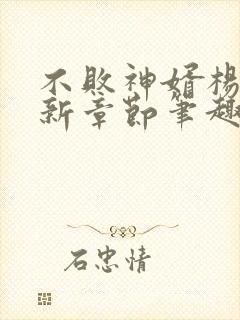 不败神婿杨
新章节笔趣
石忠情